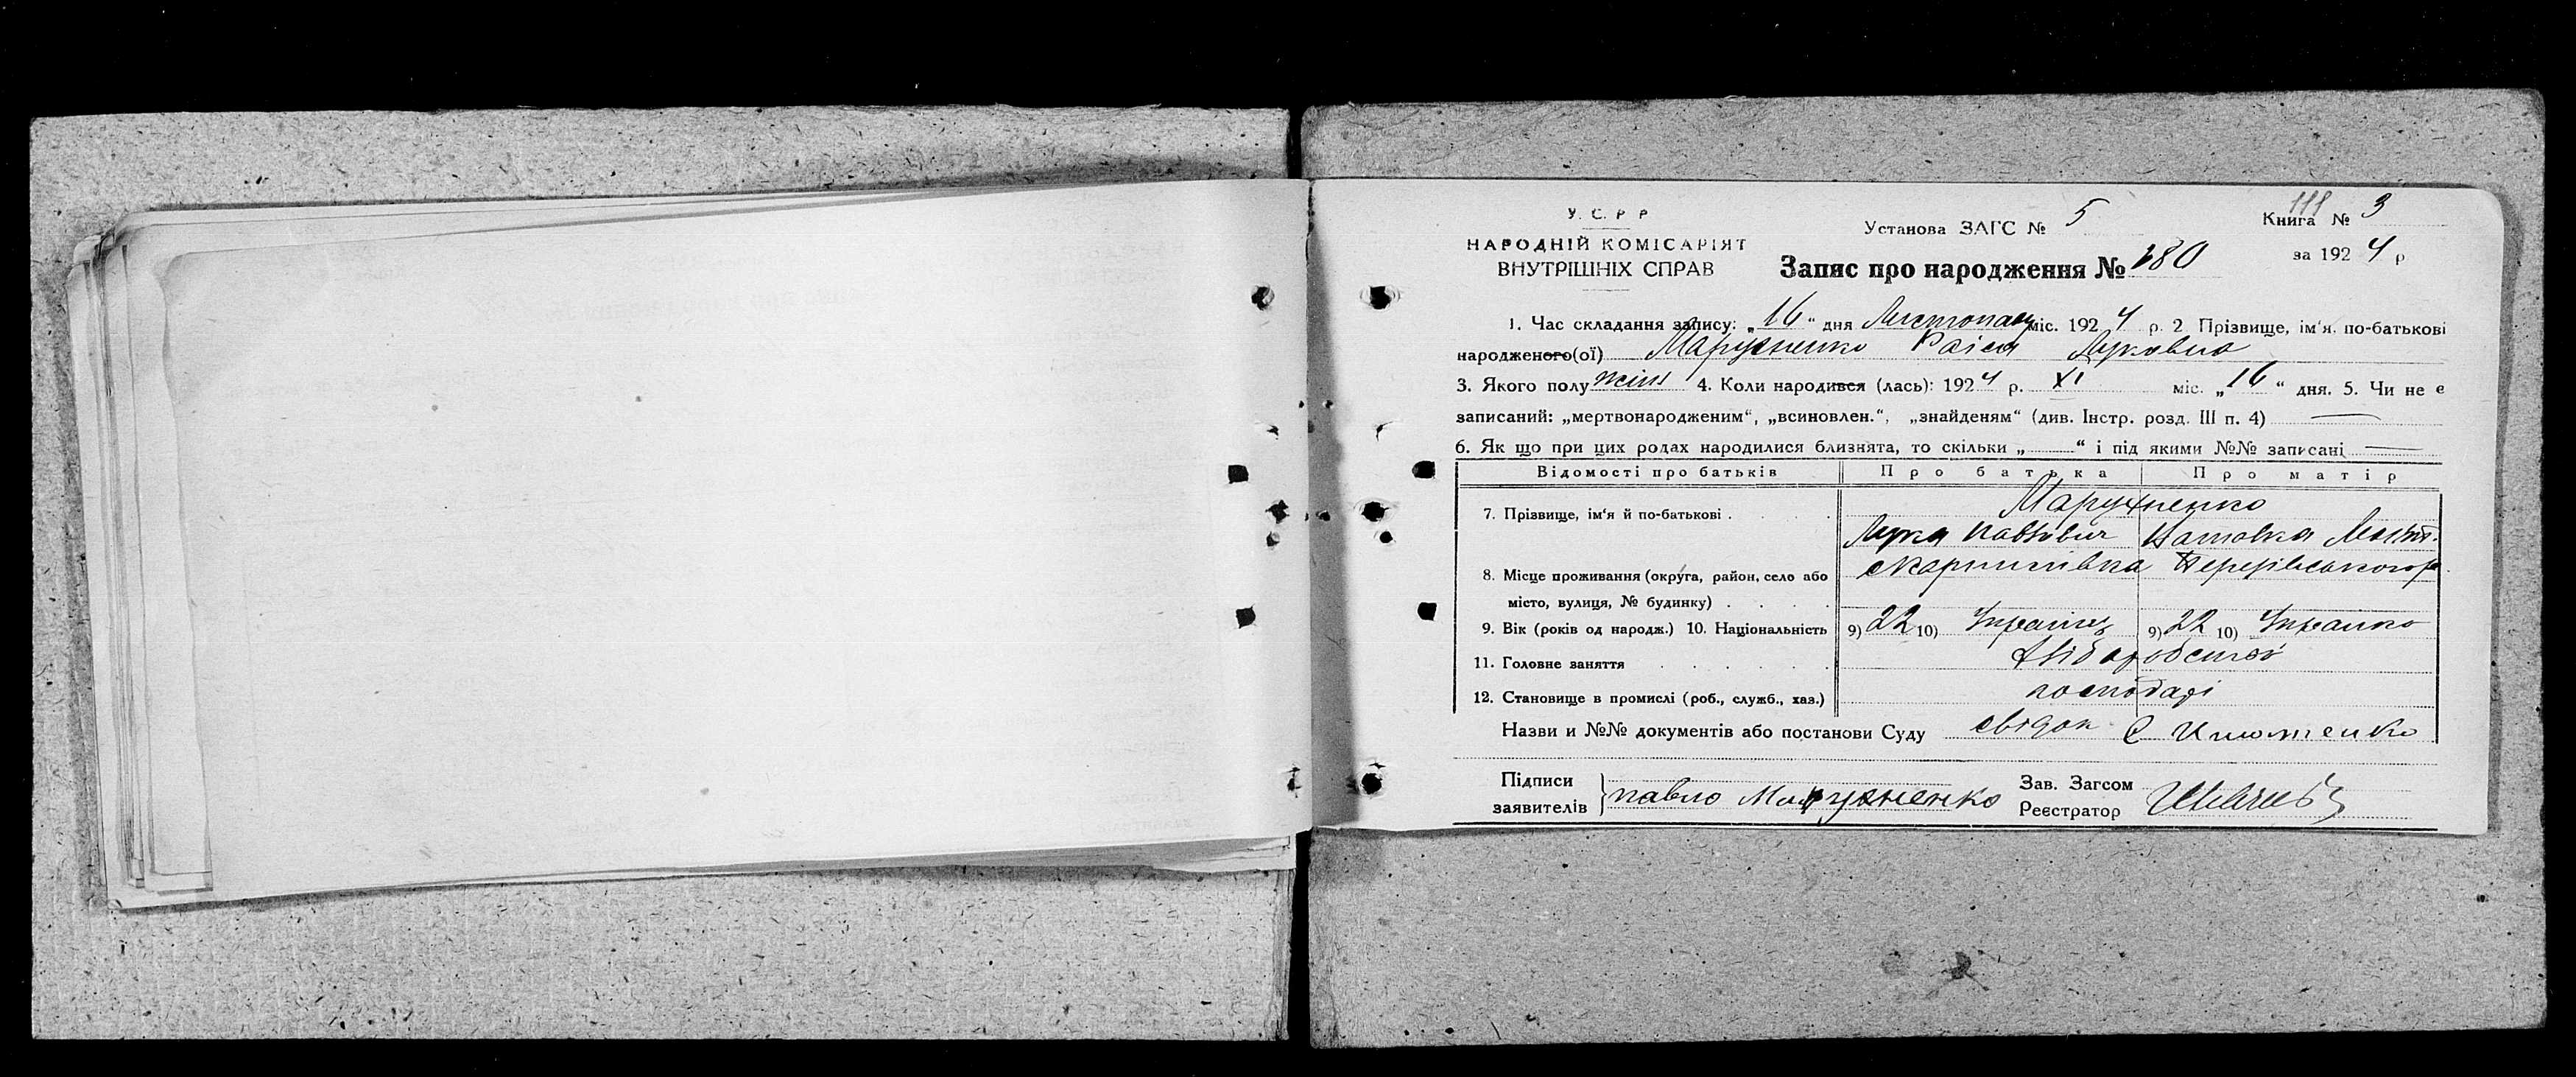 У. С. Р Р
НАРОДНІЙ КОМІСАРІЯТ
ВНУТРІШНІХ СПРАВ
Установа ЗАГС № 5
111
Книга № 3
Запис про народження № 180
за 1924 р
1. Час складання запису: „16“ дня Листопад міс. 1924 р. 2 Прізвище, ім'я, по-батькові
народженого(ої) Марухненко Раіса Луковна
3. Якого полу жін 4. Коли народився (лась): 1924 р. XI міс. „16“ дня. 5. Чи не є
записаний: „мертвонародженим“, „всиновлен.“, „знайденям“ (див. Інстр. розд. III п. 4)
6. Як що при цих родах народилися близнята, то скільки „ “ і під якими №№ записані
Відомості про батьків Про батька Про матір
7. Прізвище, ім'я й по-батькові . . . Марухненко
Лука Павлович
8. Місце проживання (округа, район, село або
місто, вулиця, № будинку) . . . .
9. Вік (років од народж.) 10. Національність 9) 22 10) Україн 9) 22 10) Українка
11. Головне заняття . . . . . . Хліборобство
12. Становище в промислі (роб., служб., хаз.) господарі
Назви и №№ документів або постанови Суду свідок
Підписи
заявителів павло Марухненко
Зав. Загсом
Реєстратор